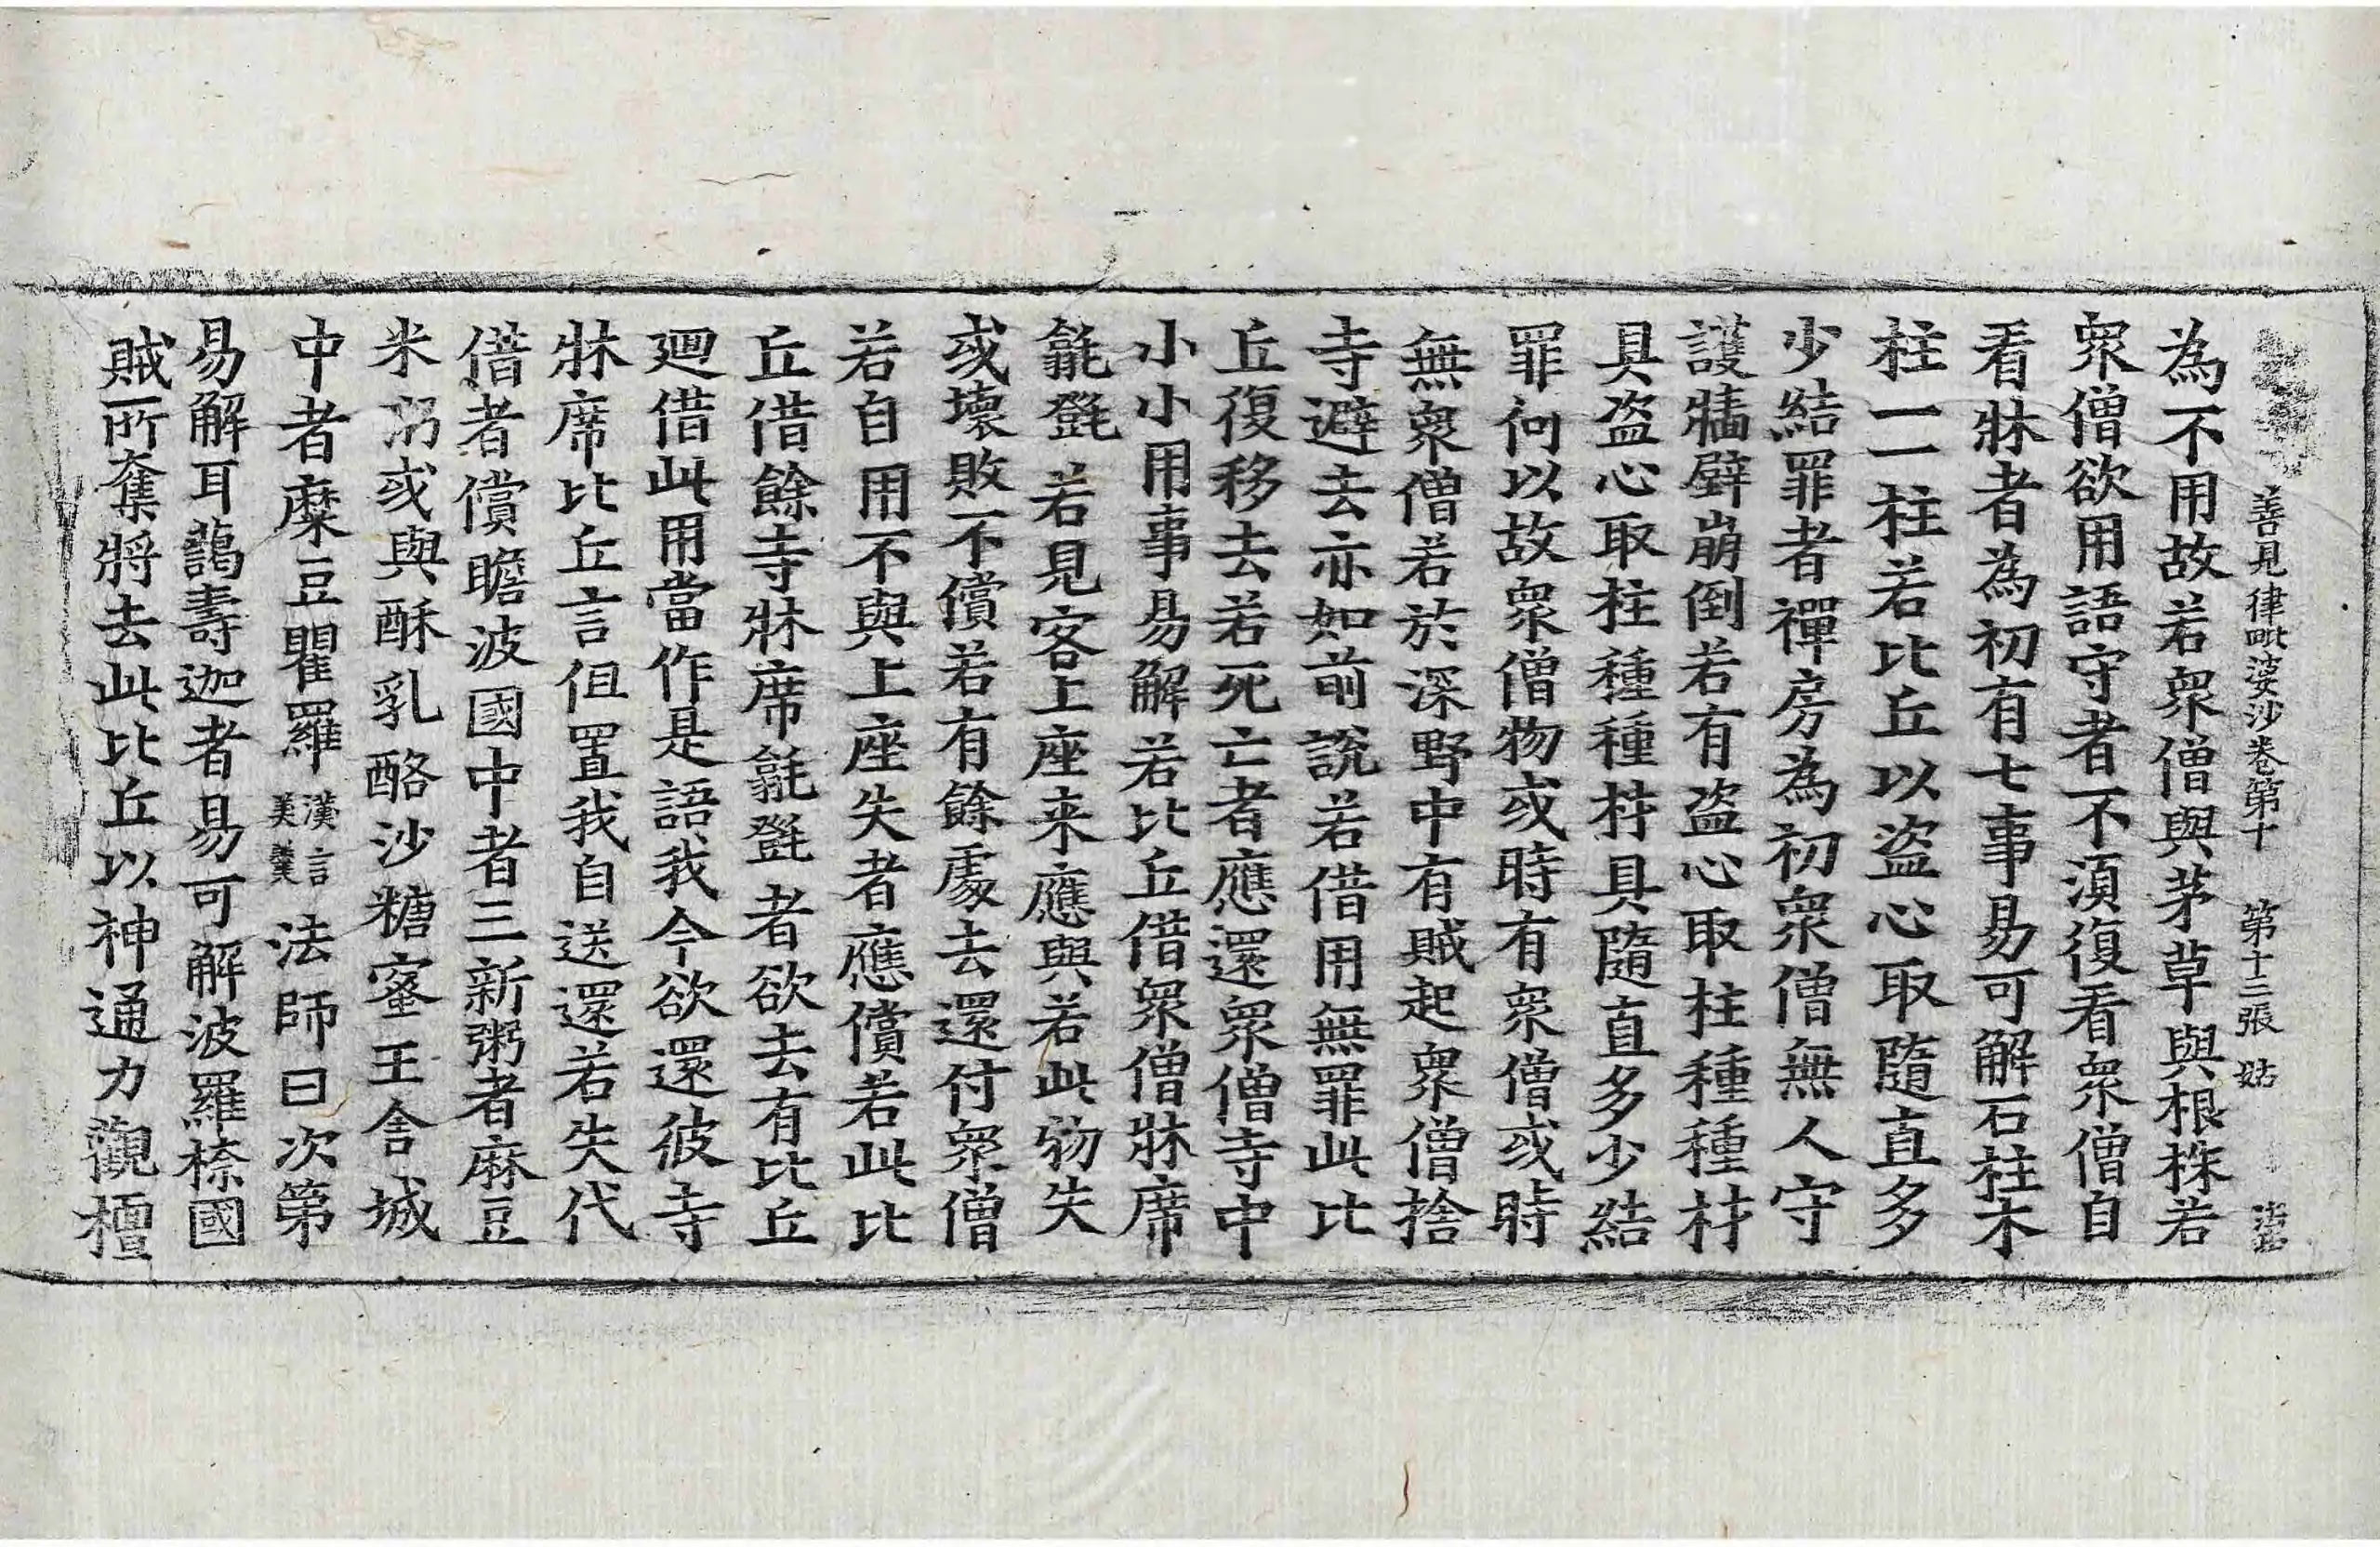 善見律毗婆沙卷第十　第十二張　姑
為不用故若衆僧與茅草與根株若
衆僧欲用語守者不湏復看衆僧自
看牀者為初有七事易可解石柱木
柱一一柱若比丘以盜心取隨直多
少結罪者禪房為初衆僧無人守
護牆壁崩倒若有盜心取柱種種材
具盜心取柱種種材具隨直多少結
罪何以故衆僧物或時有衆僧或時
無衆僧若於深野中有賊起衆僧捨
寺避去亦如前說若借用無罪此比
丘復移去若死亡者應還衆僧寺中
小小用事易解若比丘借衆僧牀席
氍㲪若見客上座来應與若此物失
或壞敗不償若有餘處去還付衆僧
若自用不與上座失者應償若此比
丘借餘寺牀席氍㲪者欲去有比丘
廻借此用當作是語我今欲還彼寺
牀席比丘言但置我自送還若失代
借者償瞻波國中者三新粥者麻豆
米粥或與酥乳酪沙糖蜜王舍城
中者糜豆瞿羅漢言美羹法師曰次第
易解耳謁壽迦者易可解波羅㮈國
賊所奪將去此比丘以神通力觀檀